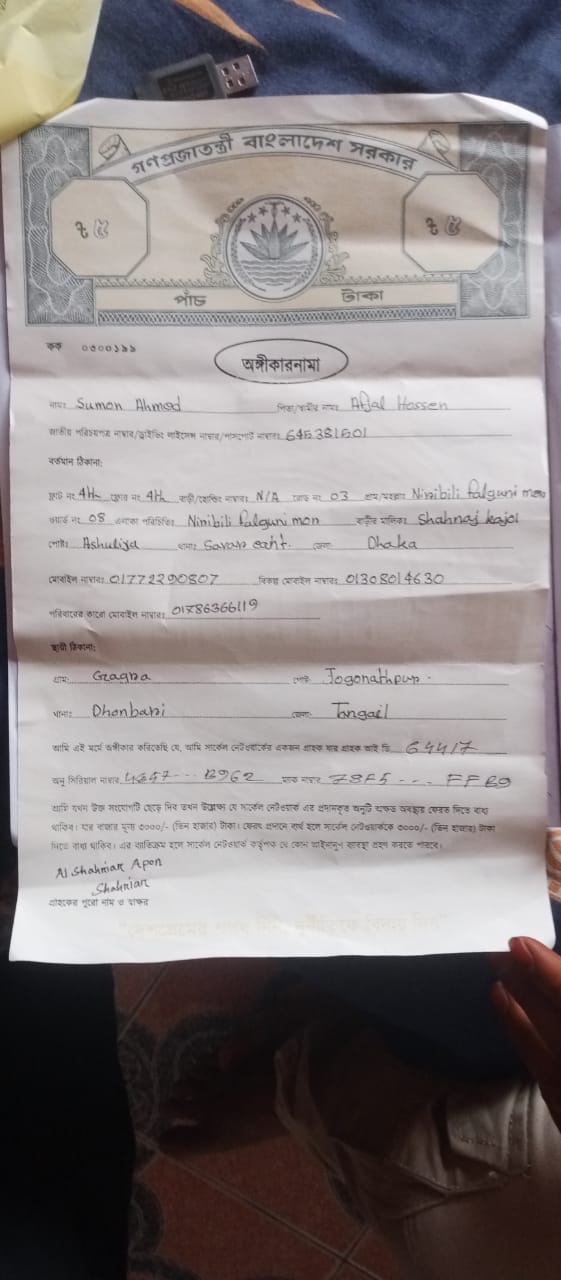 গণপ্রজাতন্ত্রী বাংলাদেশ সরকার
৳ ৫ ৳ ৫
পাঁচ টাকা
কক ০০০০১৯৯
অঙ্গীকারনামা
নামঃ Sumon Ahmed পিতা/স্বামীর নামঃ Afjal Hossen
জাতীয় পরিচয়পত্র নাম্বার/ড্রাইভিং লাইসেন্স নাম্বার/পাসপোর্ট নাম্বারঃ 645381501
বর্তমান ঠিকানা:
ফ্লাট নং 4th ফ্লোর নং 4th বাড়ী/হোল্ডিং নাম্বারঃ N/A রোড নং 03 গ্রাম/মহল্লাঃ Niribili falguni mor
ওয়ার্ড নং 08 এলাকা পরিচিতিঃ Niribili falguni mor বাড়ীর মালিকঃ Shahnaj kajol
পোষ্টঃ Ashuliya থানাঃ Savar cant. জেলাঃ Dhaka
মোবাইল নাম্বারঃ 01772290807 বিকল্প মোবাইল নাম্বারঃ 01308014630
পরিবারের কারো মোবাইল নাম্বারঃ 01786366119
স্থায়ী ঠিকানা:
গ্রামঃ Gragra পোষ্টঃ Jogonathpur.
থানাঃ Dhonbari জেলাঃ Tangail
আমি এই মর্মে অঙ্গীকার করিতেছি যে, আমি সার্কেল নেটওয়ার্কের একজন গ্রাহক যার গ্রাহক আই ডি 64417
অনু সিরিয়াল নাম্বার 4857...B962 ম্যাক নাম্বার 78F5...FFB9
আমি যখন উক্ত সংযোগটি ছেড়ে দিব তখন উল্লেখ্য যে সার্কেল নেটওয়ার্ক এর প্রদানকৃত অনুটি অক্ষত অবস্থায় ফেরত দিতে বাধ্য
থাকিব। যার বাজার মূল্য ৩০০০/- (তিন হাজার) টাকা। ফেরৎ প্রদানে ব্যর্থ হলে সার্কেল নেটওয়ার্ককে ৩০০০/- (তিন হাজার) টাকা
দিতে বাধ্য থাকিব। এর ব্যতিক্রম হলে সার্কেল নেটওয়ার্ক কর্তৃপক্ষ যে কোন আইনানুগ ব্যবস্থা গ্রহণ করতে পারবে।
Al Shahriar Apon
Shahriar
গ্রাহকের পুরো নাম ও স্বাক্ষর